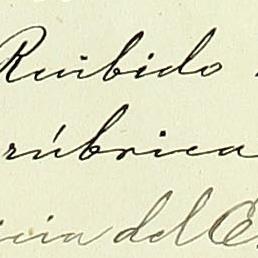 Recibido
rúbrica
icia del E